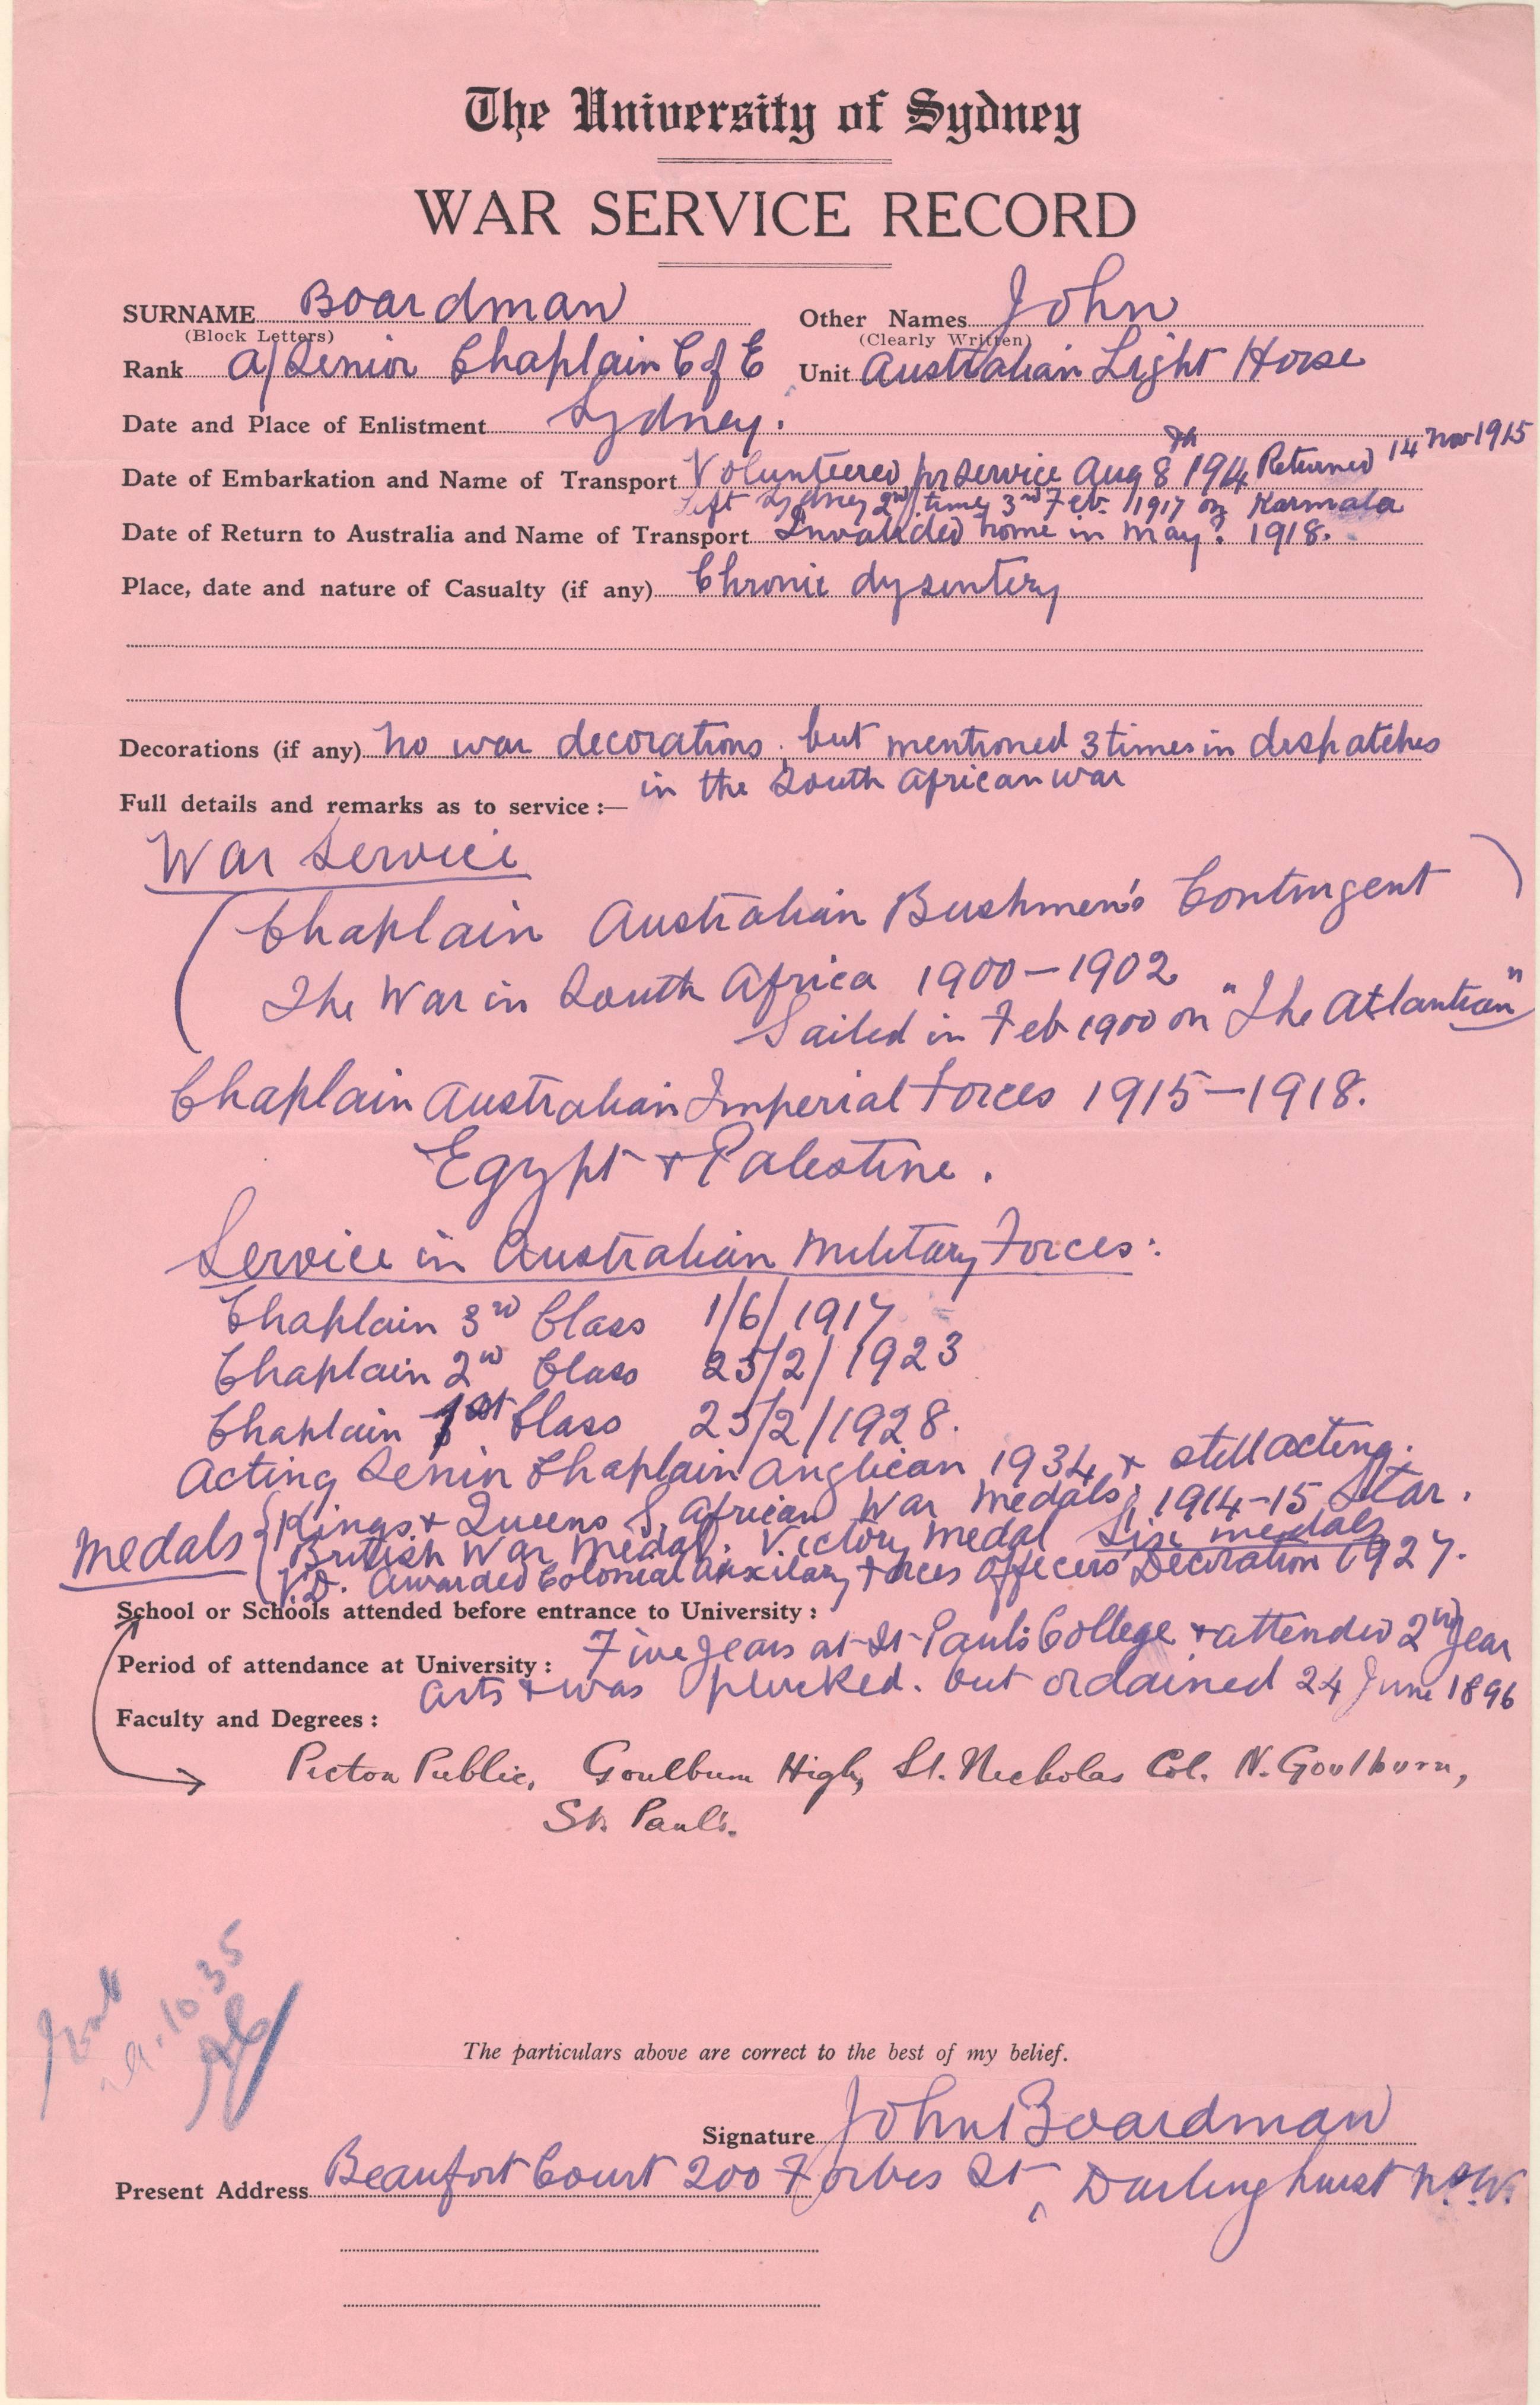 The University of Sydney
WAR SERVICE RECORD
SURNAME Boardman Other Names John
(Block Letters) (Clearly Written)
Rank A/Senior Chaplain C of E Unit Australian Light Horse
Date and Place of Enlistment Sydney.
Date of Embarkation and Name of Transport Volunteered for service Aug 8th 1914 Returned 14 Nov 1915
Left Sydney 2nd time 3rd Feb. 1917 on Karmala
Date of Return to Australia and Name of Transport Invalided home in May? 1918.
Place, date and nature of Casualty (if any) Chronic dysentery
Decorations (if any) No war decorations, but mentioned 3 times in dispatches
in the South African war
Full details and remarks as to service :—
War Service
(Chaplain Australian Bushmen's Contingent)
The War in South Africa 1900–1902
Sailed in Feb 1900 on "The Atlantian"
Chaplain Australian Imperial Forces 1915–1918.
Egypt & Palestine.
Service in Australian Military Forces:
Chaplain 3rd Class 1/6/1917
Chaplain 2nd Class 25/2/1923
Chaplain 1st Class 25/2/1928.
Acting Senior Chaplain Anglican 1934 & still acting.
Medals { Kings & Queens S. African War Medals; 1914-15 Star.
British War Medal. Victory Medal Six medals
V.D. Awarded Colonial Auxilary Forces Officers Decoration 1927.
School or Schools attended before entrance to University :
Five years at St Paul's College & attended 2nd year
Period of attendance at University :
Arts & was plucked. but ordained 24 June 1896
Faculty and Degrees :
Picton Public, Goulburn High, St. Nicholas Col. N. Goulburn,
St. Paul's.
10.35
The particulars above are correct to the best of my belief.
Signature John Boardman
Present Address Beaufort Court 200 Forbes St, Darlinghurst N.S.W.